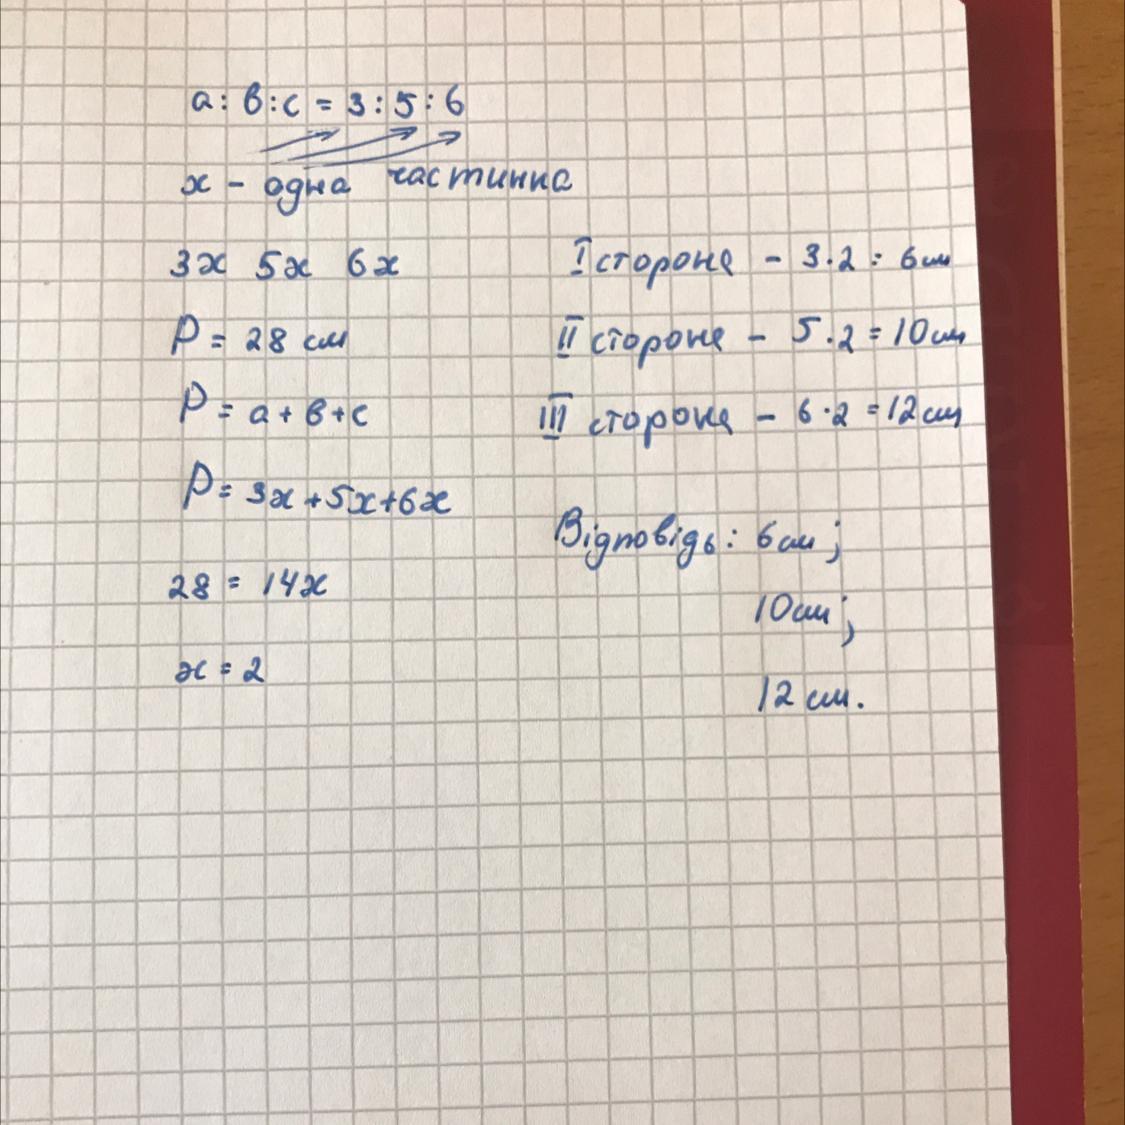 а : в : с = 3 : 5 : 6
х - одна частинка
3х 5х 6х
Р = 28 см
Р = а + в + с
Р = 3х + 5х + 6х
28 = 14х
х = 2
I сторона - 3 · 2 = 6 см
II сторона - 5 · 2 = 10 см
III сторона - 6 · 2 = 12 см
Відповідь: 6 см;
10 см;
12 см.